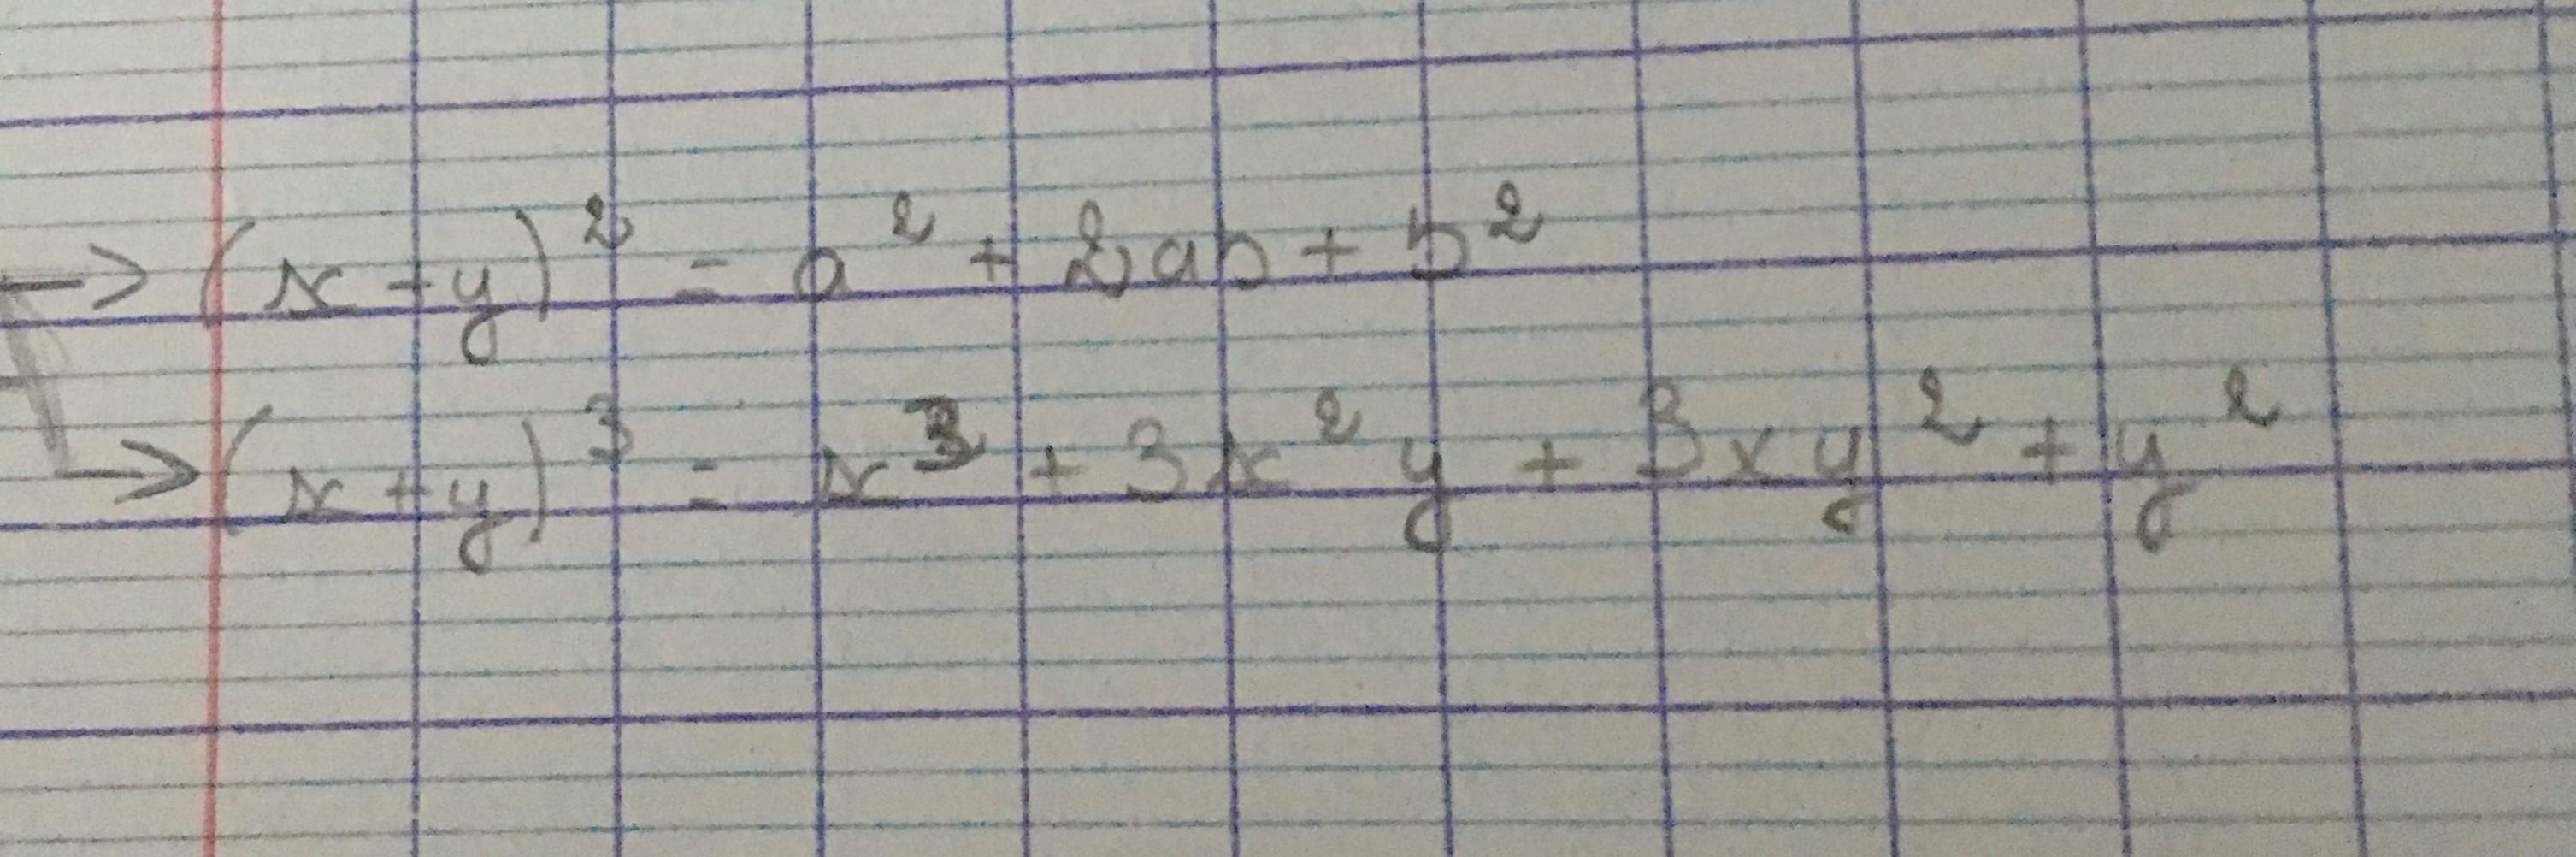 → (x+y)² = a² + 2ab + b²
→ (x+y)³ = x³ + 3x²y + 3xy² + y²